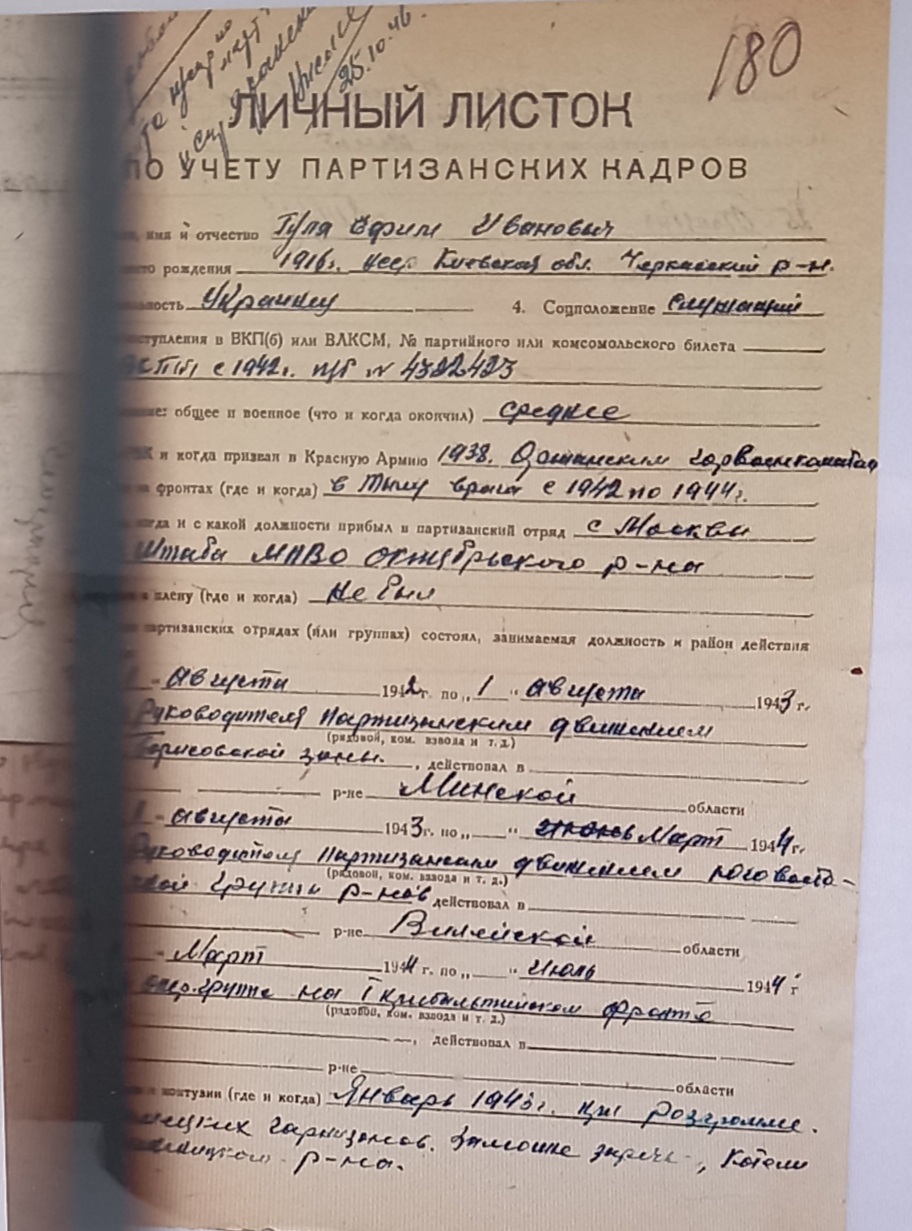 180
25.10.46.
ЛИЧНЫЙ ЛИСТОК
ПО УЧЕТУ ПАРТИЗАНСКИХ КАДРОВ
имя и отчество Гуля Ефим Иванович
рождения 1916г. УССР Киевской обл. Черкасский р-н.
Украинец 4. Соцположение служащий
вступления в ВКП(б) или ВЛКСМ, № партийного или комсомольского билета
с 1942г. п/б № 4322423
общее и военное (что и когда окончил) среднее
и когда призван в Красную Армию 1938.
на фронтах (где и когда) в тылу врага с 1942 по 1944г.
когда и с какой должности прибыл в партизанский отряд с Москвы
Штаба МПВО Октябрьского р-на
плену (где и когда) не был
партизанских отрядах (или группах) состоял, занимаемая должность и район действия
1 " августа 1942г. по „1 " августа 1943г.
Руководителя партизанским движением
(рядовой, ком. взвода и т. д.)
Борисовской зоны. , действовал в
р-не Минской области
1 " августа 1943г. по „ " Март 1944г.
Руководителя партизанским движением юговосто-
(рядовой, ком. взвода и т. д.)
чной группы р-нов действовал в
р-не Вилейской области
" Март 1944 г. по „ " Июль 1944 г
опер.группе на I Прибалтийском фронте
(рядовой, ком. взвода и т. д.)
, действовал в
р-не области
и контузии (где и когда) Январь 1943г. при розгромме.
немецких гарнизонов.
р-на.